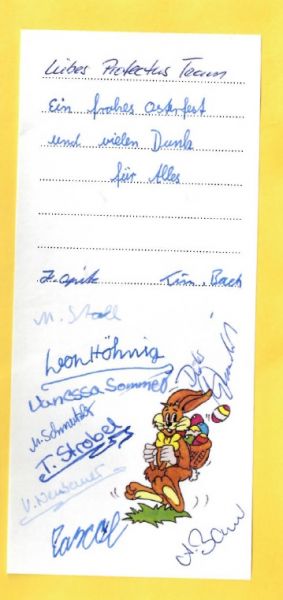 Liebes Protectus Team
Ein frohes Osterfest
und vielen Dank
für Alles
Tim, Bach
M. Stoll
Leon Höhnig
Vanessa Sommer
M. Schneider
T. Strobel
V. Neubauer
Pascal